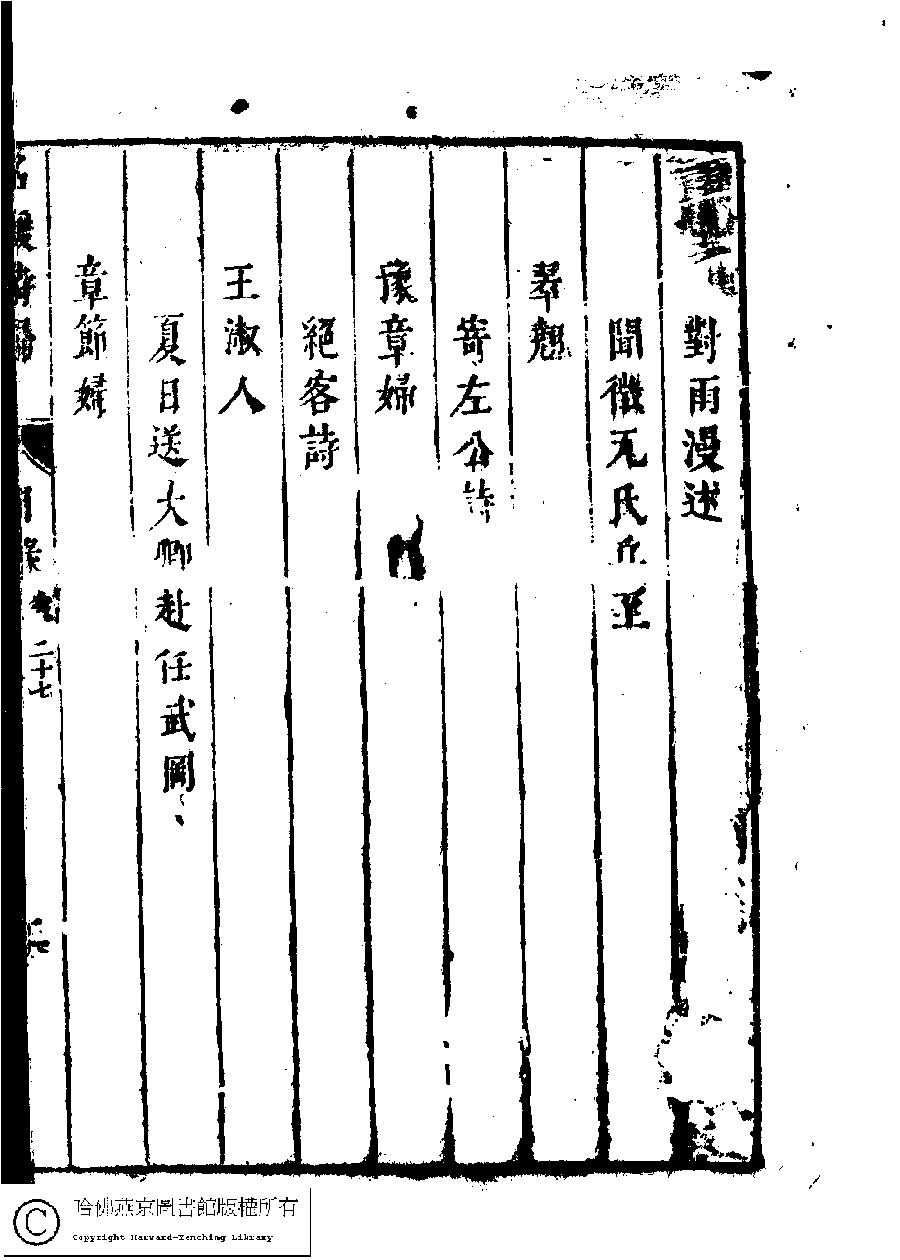 對雨漫述
聞徵兀氏兵至
翠翹
寄左公詩
豫章婦
絕客詩
王淑人
夏日送大卿赴任武岡
章節婦
名媛詩歸
目錄
二十七
哈佛燕京圖書館版權所有
Copyright Harvard-Yenching Library